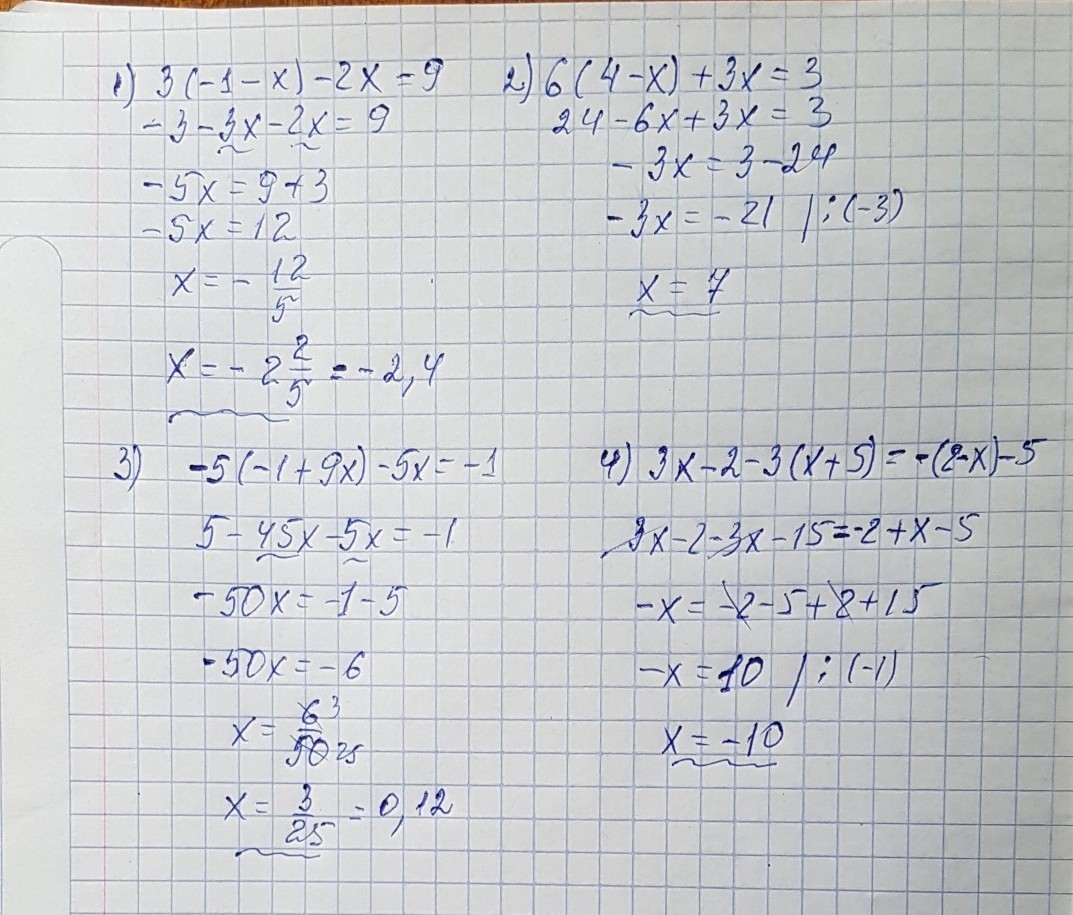 1) 3(-1-x)-2x=9
-3-3x-2x=9
-5x=9+3
-5x=12
x=-12/5
x=-2 2/5=-2,4
2) 6(4-x)+3x=3
24-6x+3x=3
-3x=3-24
-3x=-21 |:(-3)
x=7
3) -5(-1+9x)-5x=-1
5-45x-5x=-1
-50x=-1-5
-50x=-6
x=6/50 3 25
x=3/25=0,12
4) 3x-2-3(x+5)=-(2-x)-5
3x-2-3x-15=-2+x-5
-x=-2-5+2+15
-x=10 |:(-1)
x=-10